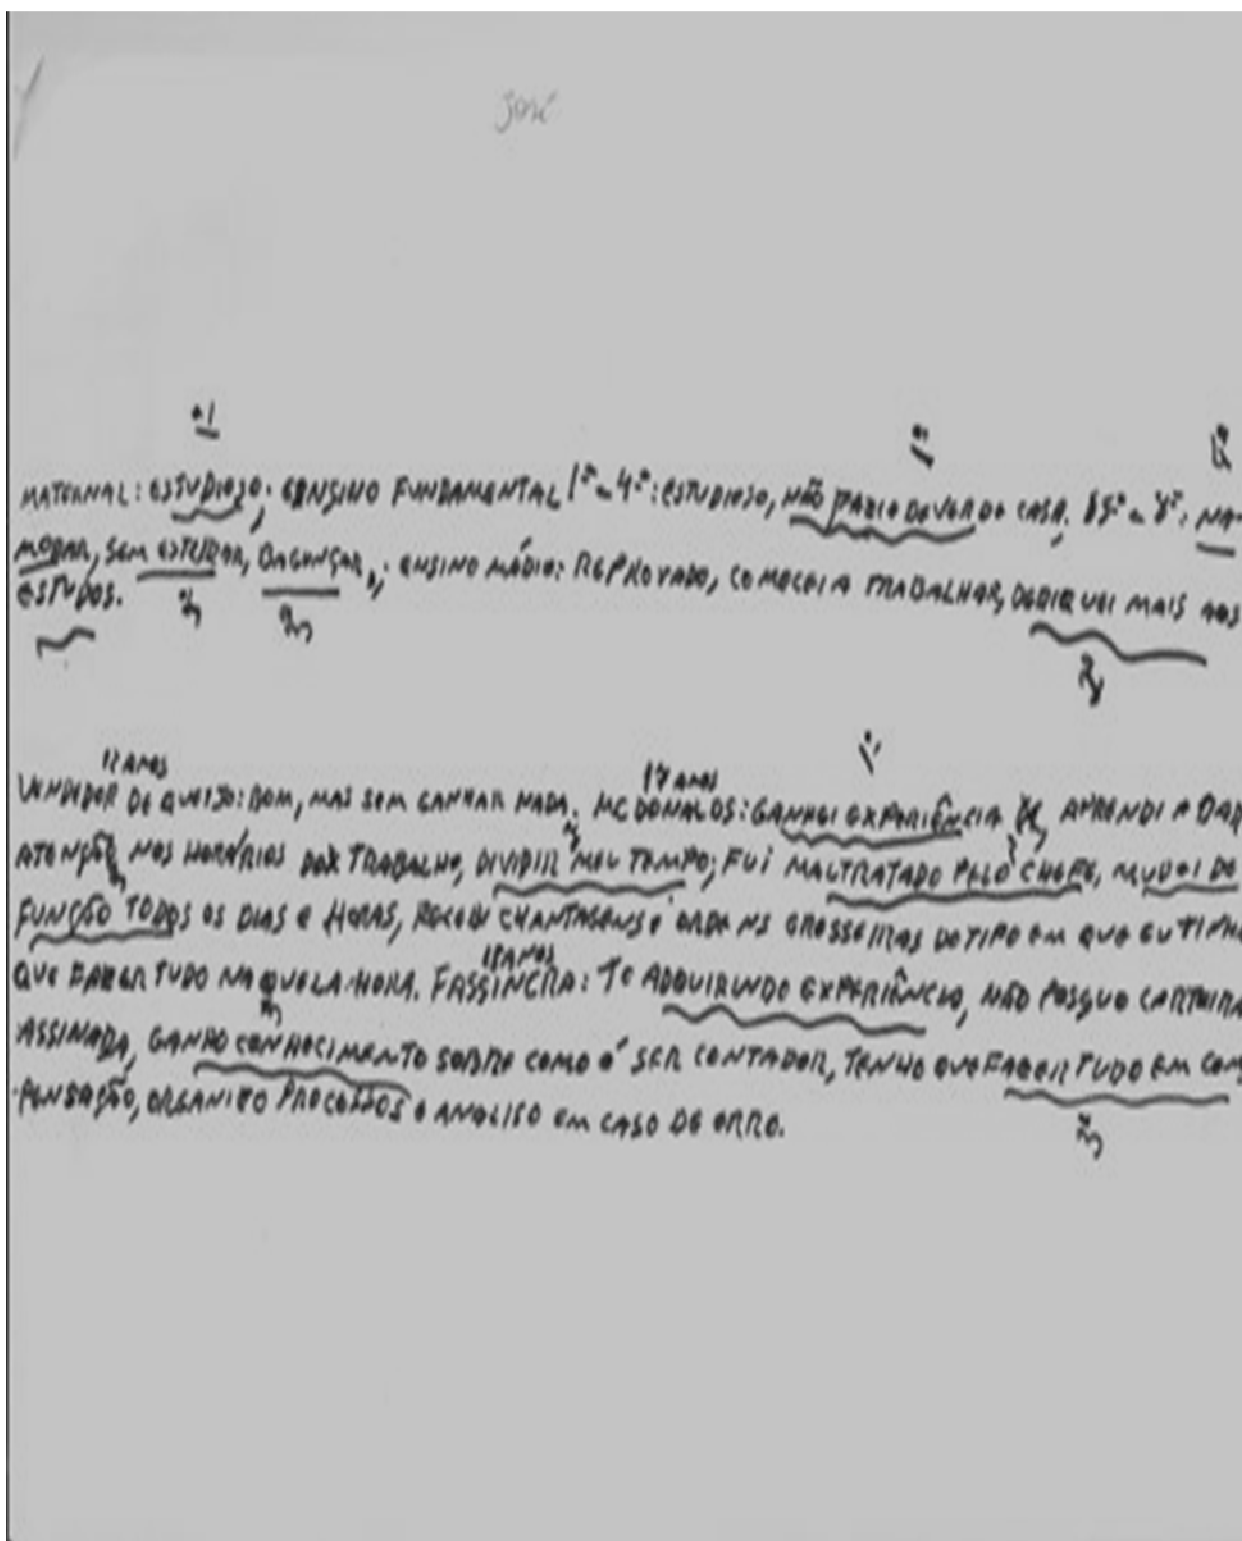 José
MATERNAL: ESTUDIOSO; ENSINO FUNDAMENTAL 1ª a 4ª: ESTUDIOSO, NÃO FAZIA DEVER DE CASA, 5ª a 8ª: NA-
MORAR, SEM ESTUDAR, BAGUNÇAR; ENSINO MÉDIO: REPROVADO, COMECEI A TRABALHAR, DEDIQUEI MAIS AOS
ESTUDOS.
12 ANOS 17 ANOS
VENDEDOR DE QUEIJO: BOM, MAS SEM GANHAR NADA. MC DONALDS: GANHEI EXPERIÊNCIA, APRENDI A DAR
ATENÇÃO NOS HORÁRIOS DE TRABALHO, DIVIDIR MEU TEMPO; FUI MALTRATADO PELO CHEFE, MUDEI DE
FUNÇÃO TODOS OS DIAS E HORAS, RECEBI CHANTAGENS E ORDENS GROSSEIRAS DO TIPO EM QUE EU TINHA
18 ANOS
QUE FAZER TUDO NAQUELA HORA. : TÔ ADQUIRINDO EXPERIÊNCIA, NÃO POSSUO CARTEIRA
ASSINADA, GANHO CONHECIMENTO SOBRE COMO É SER CONTADOR, TENHO QUE FAZER TUDO EM COM-
PENSAÇÃO, ORGANIZO PROCESSOS E ANALISO EM CASO DE ERRO.